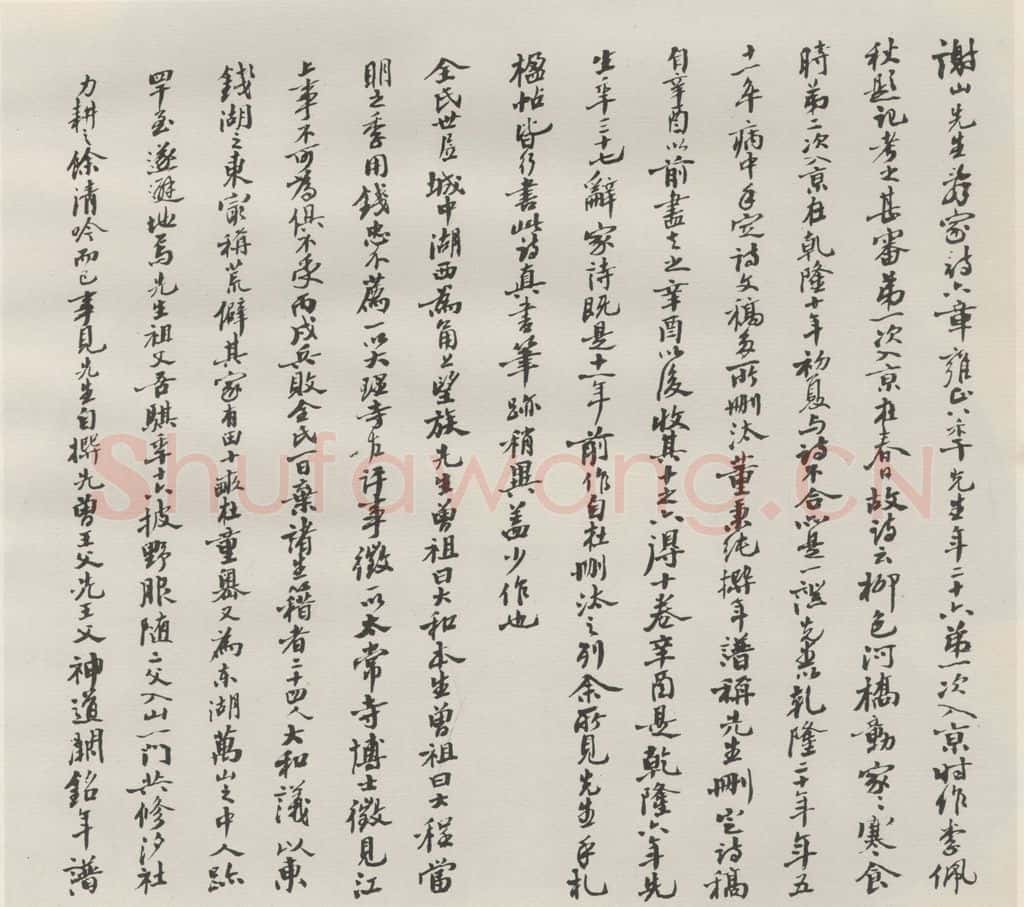 謝山先生辭家詩六章雍正八年先生年二十六第一次入京時作李佩
秋題記考之甚審第一次入京在春日故詩云柳色河橋動家〻寒食
時第二次入京在乾隆十年初夏与詩不合必是一證先生以乾隆二十年年五
十一年病中手定詩文稿多所刪汰董秉純撰年譜稱先生刪定詩稿
自辛酉以前盡去之辛酉以後收其十之六得十卷辛酉是乾隆六年先
生年三十七辭家詩既是十一年前作自在刪汰之列余所見先生手札
楹帖皆行書此詩真書筆跡稍異蓋少作也
全氏世居城中湖西為甬上望族先生曾祖曰大和本生曾祖曰大程當
明之季用錢忠介薦一以大理寺左評事徵一以太常寺博士徵見江
上事不可為俱不受丙戌兵敗全氏一日棄諸生籍者二十四人大和議以東
錢湖之東家稱荒僻其家有田十畝在童嶴又為東湖萬山之中人跡
罕至遂避地焉先生祖父吾騏年十六披野服隨二父入山一門共修汐社
力耕之餘清吟而已事見先生自撰先曾王父先王父神道闕銘年譜
Shufawang.CN